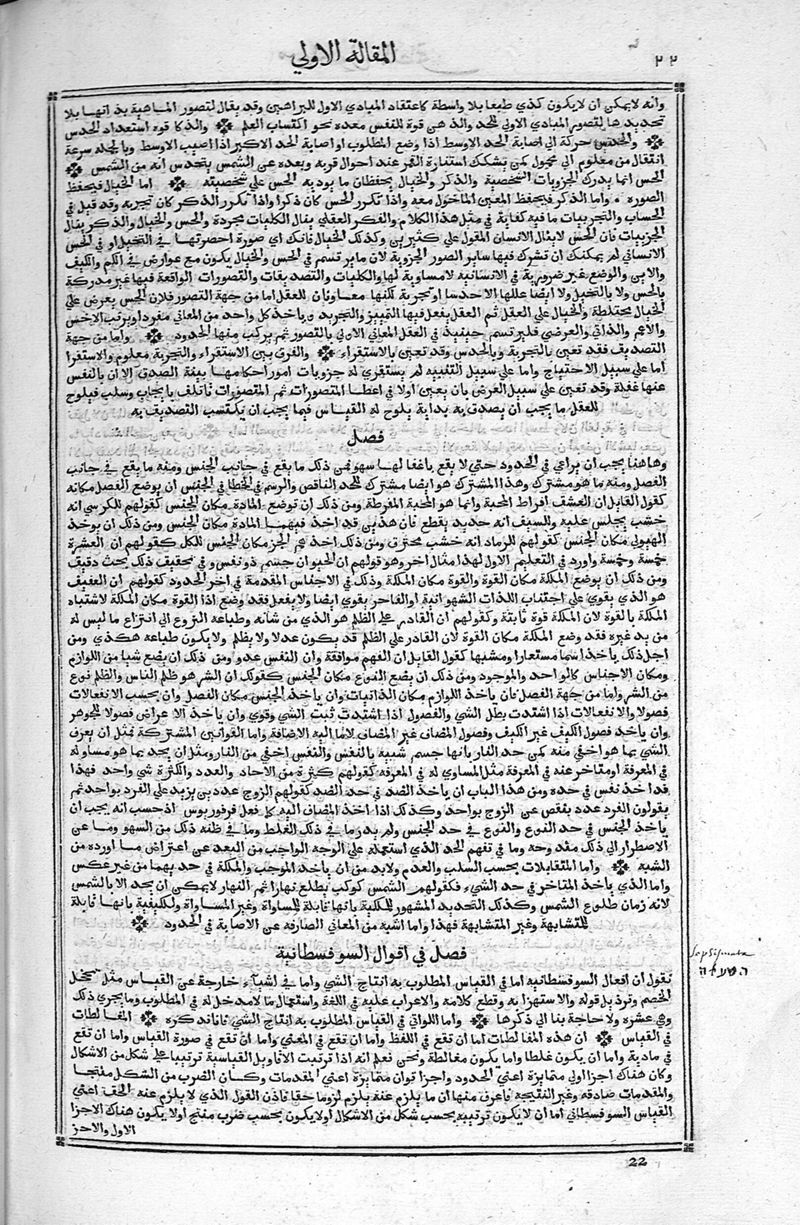 ٢٢
المقالة الاولي
وانه لا يمكن ان لا يكون كذي طبعا بلا واسطة كاعتقاد المبادي الاول للبراهين وقد يقال لتصور الماهية بذاتها بلا
تحديدها لتصور المبادي الاولي للحد والذهن قوة للنفس معده نحو اكتساب العلم والذكا قوه استعداد لحدس
والحدس حركة الي اصابة الحد الاوسط اذا وضع المطلوب او اصابة الحد الاكبر اذا اصيب الاوسط وبالجمله سرعة
انتقال من معلوم الي مجهول كمن يشكك استنارة القمر عند احوال قربه وبعده عن الشمس بتحدس انه من الشمس
الحس انما يدرك الجزويات الشخصية والذكر والخيال يحفظان ما يوديه الحس علي شخصيته اما الخيال فيحفظ
الصوره واما الذكر فيحفظ المعني الماخوذ معه واذا تكرر الحس كان ذكرا واذا تكرر الذكر كان تجربه وقد قيل في
الحساب والتجربيات ما فيه كفاية في مثل هذا الكلام والفكر العقلي ينال الكليات مجردة والحس والخيال والذكر ينال
الجزيات فان الحس لا ينال الانسان المقول علي كثيرين وكذلك الخيال فانك اي صورة احضرتها في التخيل او في الحس
الانساني لم يمكنك ان تشرك فيها ساير الصور الجزوية لان ما يرتسم في الحس والخيال يكون مع عوارض في الكم والكيف
والاين والوضع غير ضرورية في الانسانيه لا مساوية لها والكليات والتصديقات والتصورات الواقعة فيها غير مدركة
بالحس ولا بالتخيل ولا ايضا عللها الا حدسا او تجربة لكنها معاونان للعقل اما من جهة التصور فلان الحس يعرض علي
الخيال مختلطة والخيال علي العقل ثم العقل يفعل فيها التمييز والتجريد وياخذ كل واحد من المعاني مفردا ويرتب الاخس
والاعم والذاتي والعرضي فلير تسم حينيذ في العقل المعاني الاولي بالتصور ثم يركب منها الحدود واما من جهة
التصديق فقد تعين بالتجربة وبالحدس وقد تعين بالاستقراء والفرق بين الاستقراء والتجربة معلوم والاستقرا
اما علي سبيل الاحتياج واما علي سبيل التنبيه لم يستقري له جزويات امور احكامها بينة الصدق الا ان بالنفس
عنها غفلة وقد تعين علي سبيل العرض بان يعين اولا في اعطا المتصورات ثم المتصورات تاتلف بايجاب وسلب فيلوح
للعقل ما يجب ان يصدق به بداية يلوح له القياس فيما يجب ان يكتسب التصديق به
فصل
وهاهنا يجب ان يراعي في الحدود حتي لا يقع باغفالها سهو فمن ذلك ما يقع في جانب الجنس ومنه ما يقع في جانب
الفصل ومنه ما هو مشترك وهذا المشترك هو ايضا مشترك للحد الناقص والرسم في الخطا في الجنس ان يوضع الفصل مكانه
كقول القايل ان العشق افراط المحبة وانما هو المحبة المفرطة ومن ذلك ان توضع المادة مكان الجنس كقولهم للكرسي انه
خشب يجلس عليه وللسيف انه حديد يقطع فان هذين قد اخذ فيهما المادة مكان الجنس ومن ذلك ان يوخذ
الهيولي مكان الجنس كقولهم للرماد انه خشب محترق ومن ذلك اخذهم الجز مكان الجنس للكل كقولهم ان العشرة
خمسة وخمسة واورد في التعليم الاول لهذا مثال اخر وهو قولهم ان الحيوان جسم ذو نفس وفي تحقيق ذلك بحث دقيق
ومن ذلك ان يوضع الملكة مكان القوة والقوة مكان الملكة وذلك في الاجناس المقدمة في اخر الحدود كقولهم ان العفيف
هو الذي يقوي علي اجتناب اللذات الشهوانية او الفاجر يقوي ايضا ولا يفعل فقد وضع اذا القوة مكان الملكة لاشتباه
الملكة بالقوة لان الملكة قوة ثابتة وكقولهم ان القادر علي الظلم هو الذي من شانه وطباعه النزوع الي انتزاع ما ليس له
من يد غيره فقد وضع الملكة مكان القوة لان القادر علي الظلم قد يكون عدلا ولا يظلم ولا يكون طباعه هكذي ومن
اجل ذلك ياخذ اسما مستعارا ومشبها كقول القايل ان الفهم موافقة وان النفس عدد ومن ذلك ان يضع شيا من اللوازم
ومكان الاجناس كالواحد والموجود ومن ذلك ان يضع النوع مكان الجنس كقولك ان الشر هو ظلم الناس والظلم نوع
من الشر واما من جهة الفصل فان ياخذ اللوازم مكان الذاتيات وان ياخذ الجنس مكان الفصل وان يحسب الانفعالات
فصولا والانفعالات اذا اشتدت بطل الشي والفصول اذا اشتدت ثبت الشي وقوي وان ياخذ الاعراض فصولا للجوهر
وان ياخذ فصول الكيف غير الكيف وفصول المضاف غير المضاف لا ما اليه الاضافة واما القوانين المشتركة فمثل ان يعرف
الشي بما هو اخفي منه كمن حد النار بانها جسم شبيه بالنفس والنفس اخفي من النار ومثل ان يحد بما هو مساو له
في المعرفة او متاخر عنه في المعرفة مثل المساوي له في المعرفه كقولهم كثيرة من الاحاد والعدد والكثرة شي واحد فهذا
قد اخذ نفس في حده ومن هذا الباب ان ياخذ الضد في حد الضد كقولهم الزوج عدد بن يزيد علي الفرد بواحد ثم
يقولون الفرد عدد ينقص عن الزوج بواحد وكذلك اذا اخذ المضاف اليه كما فعل فرفوريوس اذ حسب انه يجب ان
ياخذ الجنس في حد النوع والنوع في حد الجنس ولم يدر ما في ذلك الغلط وما في ظنه ذلك من السهو وما عن
الاصطرار الي ذلك مندوحه وما في تفهم الحد الذي استعمله علي الوجه الواجب من البعد عن اعتراض ما اورده من
الشبه واما المتقابلات بحسب السلب والعدم ولابد من ان ياخذ الموجب والملكة في حديهما من غير عكس
واما الذي ياخذ المتاخر في حد الشيء فكقولهم الشمس كوكب يطلع نهارا ثم النهار لا يمكن ان يحد الا بالشمس
لانه زمان طلوع الشمس وكذلك التحديد المشهور للكمية بانها قابلة للمساواة وغير المساواة وللكيفية بانها قابلة
للمتشابهة وغير المتشابهة فهذا واما اشبه من المعاني الصارفه عن الاصابة في الحدود
فصل في اقوال السوفسطانية
نقول ان افعال السوفسطانيه اما في القياس المطلوب به انتاج الشي واما في اشياء خارجة عن القياس مثل تخجل
الخصم وترذيل قوله والاستهزا به وقطع كلامه والاغراب عليه في اللغة واستعمال ما لا مدخل له في المطلوب وما يجري ذلك
وهي عشره ولا حاجة بنا الي ذكرها واما اللواتي في القياس المطلوب به انتاج الشي فانا نذكره المغالطات
في القياس ان هذه المغالطات اما ان تقع في اللفظ واما ان تقع في المعني واما ان تقع في صورة القياس واما ان تقع
في مادته واما ان يكون غلطا واما يكون مغالطة ونحن نعلم انه اذا ترتبت الاقاويل القياسية ترتيبا علي شكل من الاشكال
وكان هناك اجزا اولي متمايزة اعني الحدود واجزا ثوان متمايزة اعني المقدمات وكان الضرب من الشكل منتجا
والمقدمات صادقه وغير النتيجه فاعرف منها ان ما يلزم عنه يلزم لزوما حقا فاذن القول الذي لا يلزم عنه الحق اعني
القياس السوفسطاني اما ان لا يكون ترتيبه بحسب شكل من الاشكال او لا يكون بحسب ضرب منتج او لا يكون هناك الاجزا
الاول والاجز
22
Sophismata
הטעאה